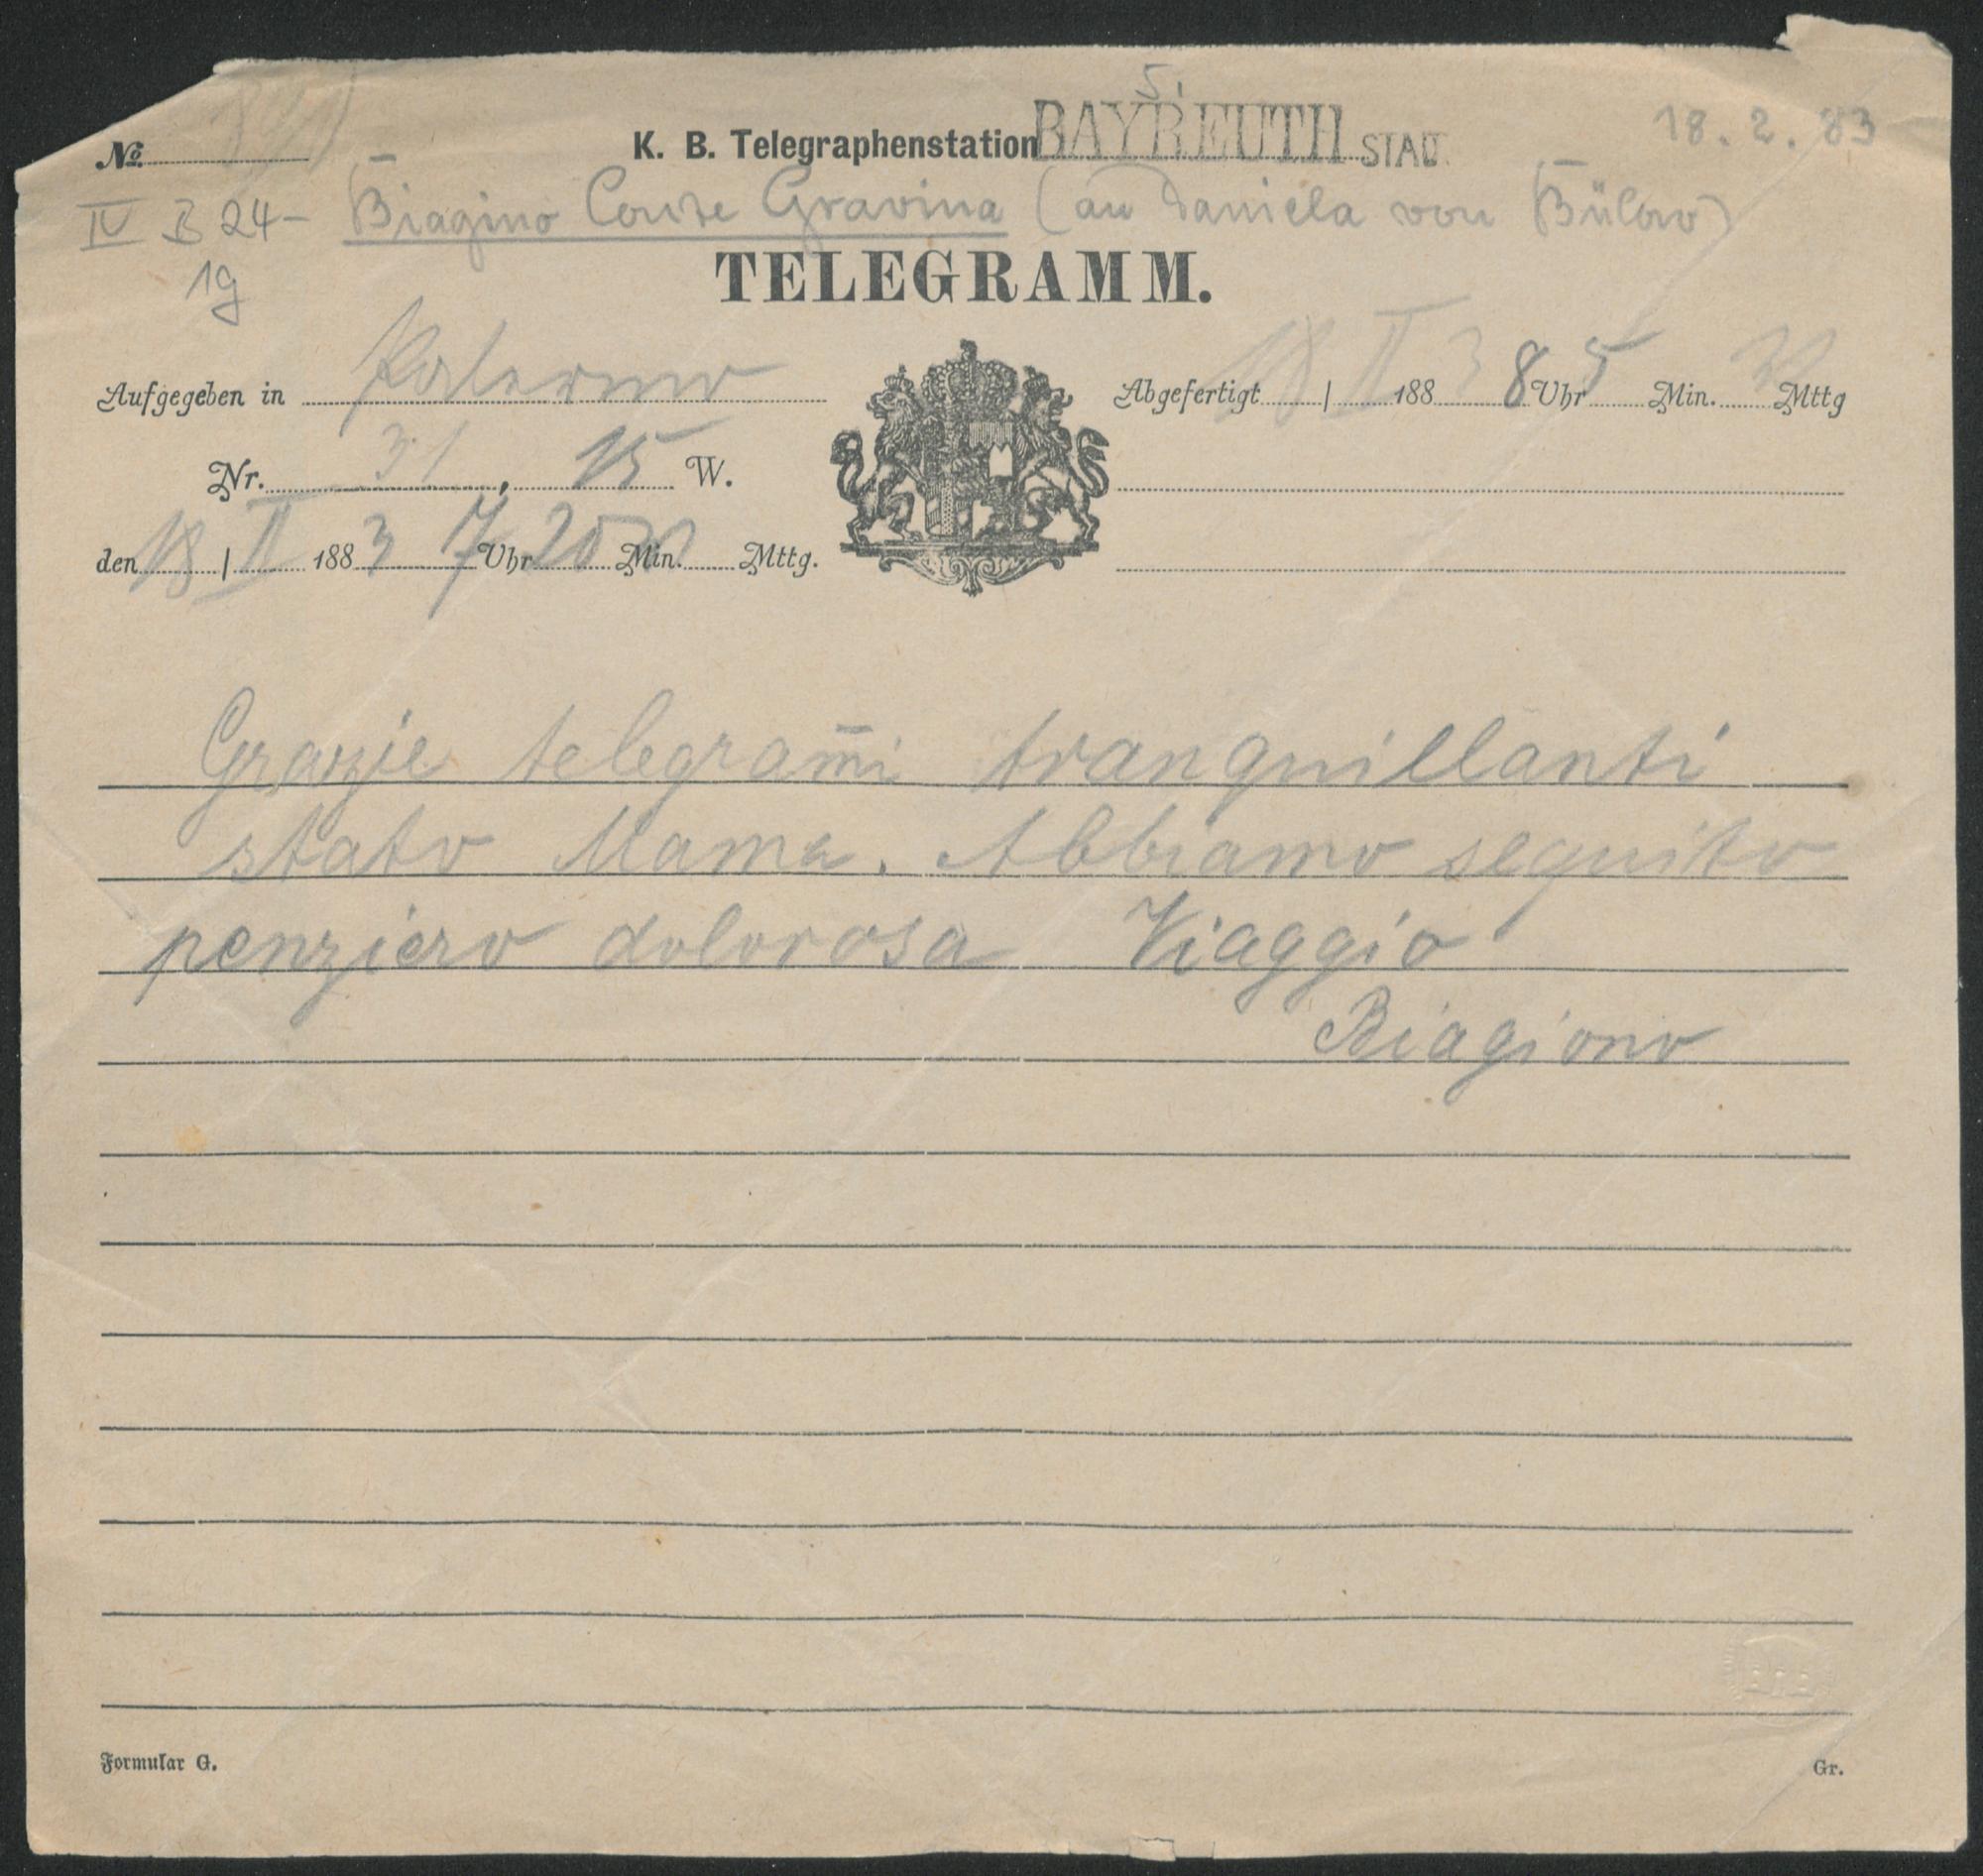 5.
No. K. B. Telegraphenstation BAYREUTH STADT 18. 2. 83
IV B 24- Biagino Conte Gravina (an Daniela von Bülow)
19
TELEGRAMM.
Aufgegeben in Palermo
Abgefertigt 18 / II 1883 8 Uhr 5 Min. Mttg
Nr. 31, 15 W.
den 18 / II 1883 7 Uhr 20 Min. Mttg.
Grazie telegram̄i tranquillanti
stato Mama. Abbiamo seguito
penziero dolorosa Viaggio
Biagiono
Formular G. Gr.